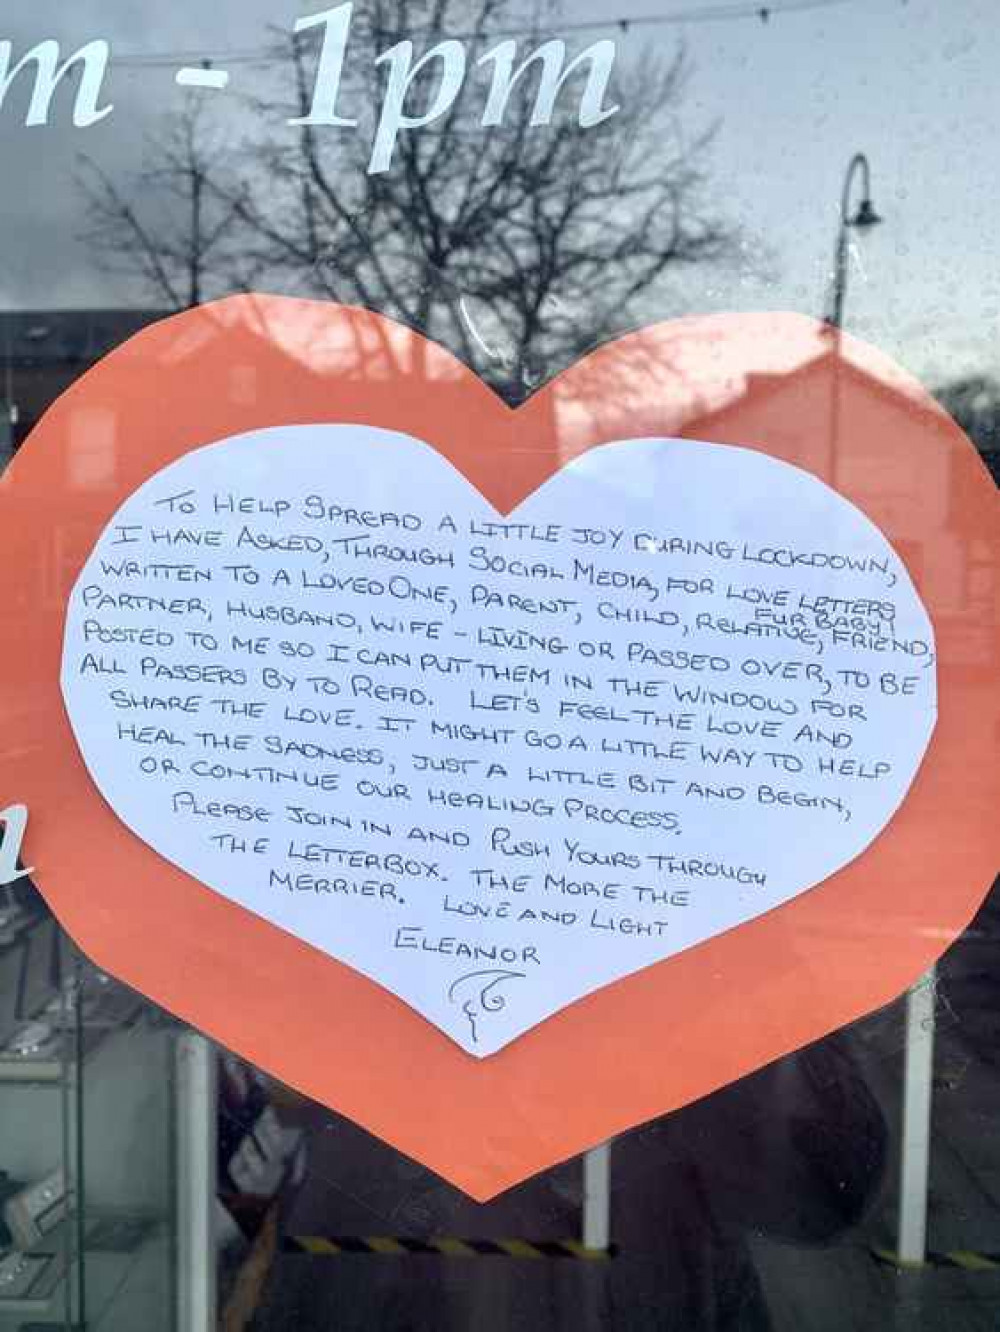 m - 1pm
TO HELP SPREAD A LITTLE JOY DURING LOCKDOWN,
I HAVE ASKED, THROUGH SOCIAL MEDIA, FOR LOVE LETTERS
WRITTEN TO A LOVED ONE, PARENT, CHILD, RELATIVE, FUR BABY, FRIEND,
PARTNER, HUSBAND, WIFE - LIVING OR PASSED OVER, TO BE
POSTED TO ME SO I CAN PUT THEM IN THE WINDOW FOR
ALL PASSERS BY TO READ. LET'S FEEL THE LOVE AND
SHARE THE LOVE. IT MIGHT GO A LITTLE WAY TO HELP
HEAL THE SADNESS, JUST A LITTLE BIT AND BEGIN,
OR CONTINUE OUR HEALING PROCESS.
PLEASE JOIN IN AND PUSH YOURS THROUGH
THE LETTERBOX. THE MORE THE
MERRIER. LOVE AND LIGHT
ELEANOR